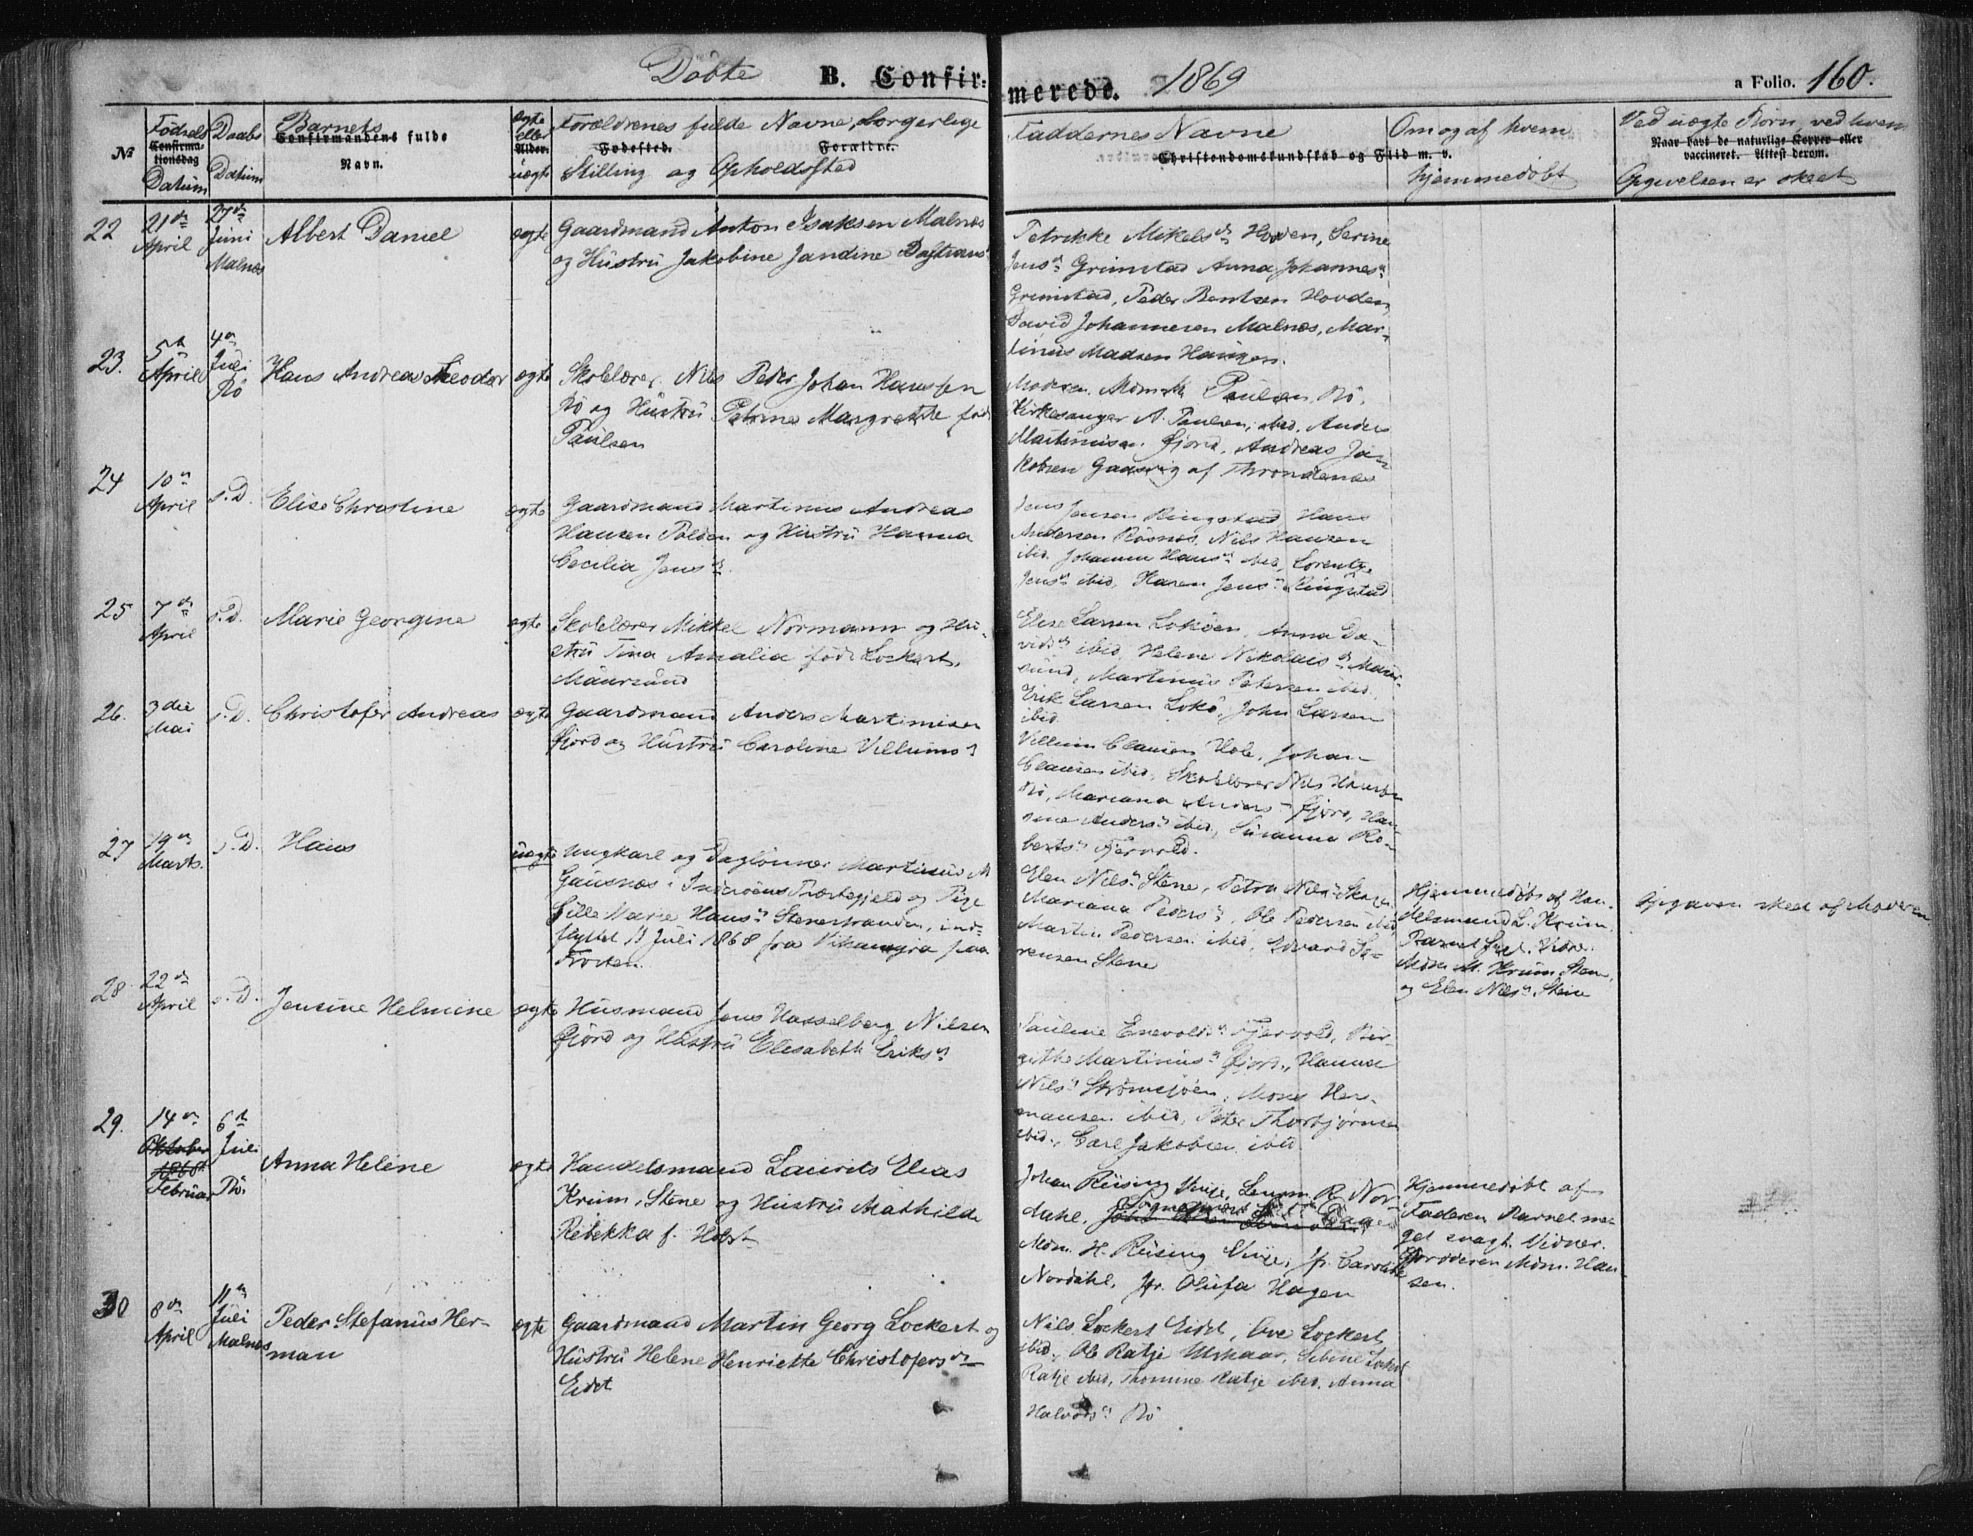 Døbte B. Confirmerede. 1869 a Folio. 160.
№
Fødsels Confirmationsdag Datum
Daabs Datum
Barnets Confirmandens fulde Navn.
ægte eller Alder. uægte
Forældrenes fulde Navne, borgerlige
Fødested. Forældre.
Stilling og Opholdssted
Faddernes Navne
Christendomskundskab og Flid m. v.
Om og af hvem hjemmedøbt
Ved uægte Børn, ved hvem
Naar havt de naturlige Kopper eller vaccineret. Attest derom.
Opgivelsen er skeet
22 21de April 27de Juni Malnæs Albert Daniel ægte
Gaardmand Anton Isaksen Malnæs
og Hustru Jakobine Jandine
Petrikke Mikelsd. Hovden, Serine
Jensd. Grimstad Anna Johannesd.
Grimstad, Peder Bentsen Hovden,
David Johannesen Malnæs, Mar-
tinus Madsen Haugen.
23. 5te April 4de Juli Bø Hans Andreas Theodor ægte
Skolelærer Nils Peder Johan Hanssen
Bø og Hustru Petrine Margrethe født
Paulsen
Moderen, Mdm. Paulsen, Bø,
Kirkesanger A. Paulsen, ibid. Anders
Martinusen Fjord, Andreas Ja-
kobsen Gaasvig af Throndenæs
24 10de April s. D. Elise Christine ægte
Gaardmand Martinus Andreas
Hansen Folden og Hustru Hanna
Cecilia Jensd.
Jens Jensen Ringstad Hans
Andersen Røsnæs, Nils Hansen
ibid. Johanna Hansd. ibid, Lorentze
Jensd. ibid, Karen Jensd. Ringstad
25 7de April s. D. Marie Georgine ægte
Skolelærer Mikkel Normann og Hu-
stru Tina Amalia født Lockert,
Maursund
Else Larsen Lokøen, Anna Da-
vidsd. ibid, Helene Nikolaisd. Maur-
sund, Martinus Petersen ibid,
Erik Larsen Lokø, John Larsen
ibid
26. 3die Mai s. D. Christofer Andreas ægte
Gaardmand Anders Martinusen
Fjord og Hustru Caroline Villumsd.
Villum Clausen Hole, Johan
Clausen ibid, Skolelærer Nils Hansen
Bø, Mariana Andersd. Fjord, Han-
sine Andersd. ibid, Susanna Ro-
bertsd. Fjervold.
27 19de Marts. s. D. Hans uægte
Ungkarl og Daglønner Martinus M
Gausnæs, Inderøens Præstegjeld og Pige
Sille Marie Hansd. Stenestranden, ind-
flyttet 11 Juli 1868 fra Vikamyra paa
Frosten.
Elen Nilsd. Stene, Petra Nilsd. Skage
Mariana Pedersd. Ole Pedersen ibid,
Martin Pedersen ibid, Edvard Sø-
rensen Stene
Hjemmedøbt af Han-
delsmand L. Krum.
Barnet svagt. Vidne:
Mdm M. Krum Stene
og Elen Nilsd. Stene
Opgaven skeet af Moderen
28. 22de April s. D. Jensine Helmine ægte
Husmand Jens Hasselberg Nilsen
Fjord og Hustru Elisabeth Eriksd.
Pauline Enevoldsd. Fjervold, Bir-
githe Martinusd. Fjord, Hanna
Nilsd. Strømsjøen, Moses Her-
mansen ibid, Peter Thorbjørnsen
ibid, Carl Jakobsen ibid
29. 14de Oktober 1868 Februar 6te Juli Bø. Anna Helene ægte
Handelsmand Laurits Elias
Krum, Stene og Hustru Mathilde
Rebekka f. Holst
Johan Rüsing Vinje, Lensm. R. Nor-
dahl,
Mdm. H. Rüsing Vinje, fr. Caroline
Nordahl, fr. Olufa Hagen
Hjemmedøbt af
Faderen Barnet me-
get svagt. Vidner.
Gjordderen Mdm. Han
sen.
30 8de April 11te Juli Malnæs Peder Stefanus Her-
man ægte
Gaardmand Martin Georg Lockert og
Hustru Helene Henriette Christofersd.
Eidet
Nils Lockert Eidet, Ove Lockert
ibid, Ole Ratje Uskaar, Sebine Lockert
Ratje ibid, Thomine Ratje ibid. Anna
Halvorsd. Bø